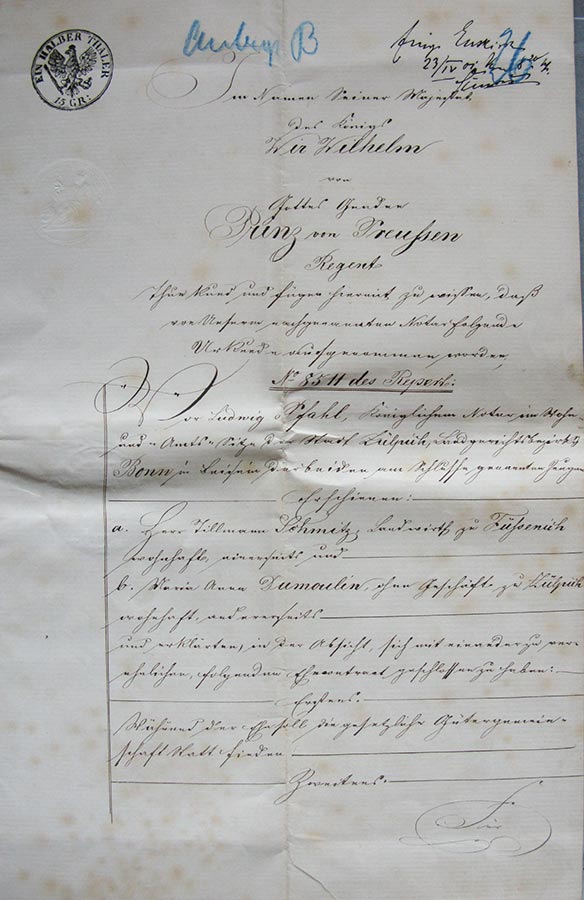 EIN HALBER THALER
15 GR:
Anlage B
23/IV
26
Im Namen Seiner Majestät
des Königs
Wir Wilhelm
von
Gottes Gnaden
Prinz von Preußen
Regent
Thun kund und fügen hiermit zu wissen, daß
von Unserm nachgenannten Notar folgende
Urkunde aufgenommen worden,
No 8511 des Repert:
Vor Ludwig Pfahl, Königlichem Notar im Wohn-
und Amts-Sitze der Stadt Zülpich, Landgerichtsbezirks
Bonn in Beisein der beiden am Schlusse genannten Zeugen
erschienen:
a. Herr Tillmann Schmitz, Landwirth zu Füssenich
wohnhaft, einerseits und
b. Maria Anna Dumoulin, ohne Geschäft zu Zülpich
wohnhaft, andererseits
und erklärten, in der Absicht, sich mit einander zu ver-
ehelichen, folgenden Ehecontract geschlossen zu haben:
Erstens.
Während der Ehe soll die gesetzliche Gütergemein-
schaft Statt finden
Zweitens.
Für